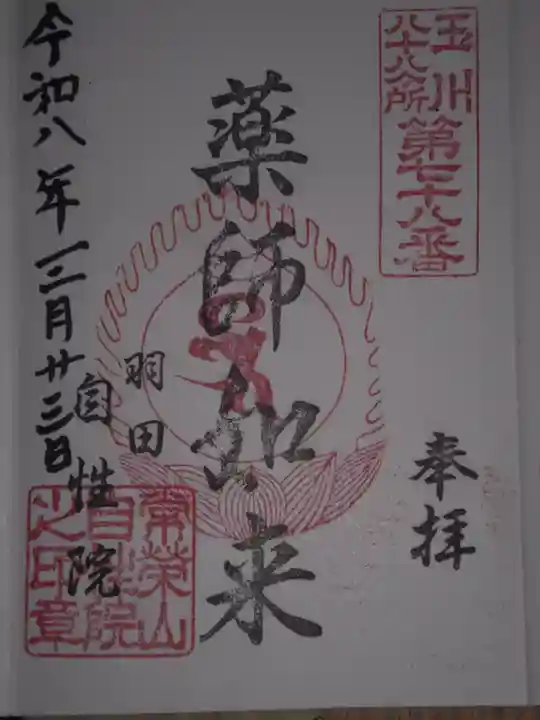 玉川
八十八ヶ所
第七十八番
奉拝
薬師如来
羽田
自性院
令和八年三月廿三日
常榮山
自性院
之印章